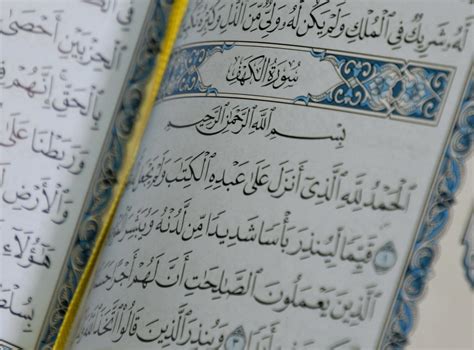 لَّهُۥ شَرِيكٌ فِى ٱلْمُلْكِ وَلَمْ يَكُن لَّهُۥ وَلِىٌّ مِّنَ ٱلذُّلِّ وَكَبِّرْهُ
سُورَةُ الكَهْفِ
بِسْمِ ٱللَّهِ ٱلرَّحْمَٰنِ ٱلرَّحِيمِ
ٱلْحَمْدُ لِلَّهِ ٱلَّذِىٓ أَنزَلَ عَلَىٰ عَبْدِهِ ٱلْكِتَٰبَ وَلَمْ يَجْعَل
١ قَيِّمًا لِّيُنذِرَ بَأْسًا شَدِيدًا مِّن لَّدُنْهُ وَيُبَشِّرَ
ٱلَّذِينَ يَعْمَلُونَ ٱلصَّٰلِحَٰتِ أَنَّ لَهُمْ أَجْرًا
أَبَدًا ٣ وَيُنذِرَ ٱلَّذِينَ قَالُوا۟ ٱتَّخَذَ ٱللَّهُ
ٱلْحِزْبَيْنِ أَحْصَىٰ
بِٱلْحَقِّ إِنَّهُمْ
وَرَبَطْنَا عَلَىٰ
وَٱلْأَرْضِ
هَٰٓؤُلَآءِ